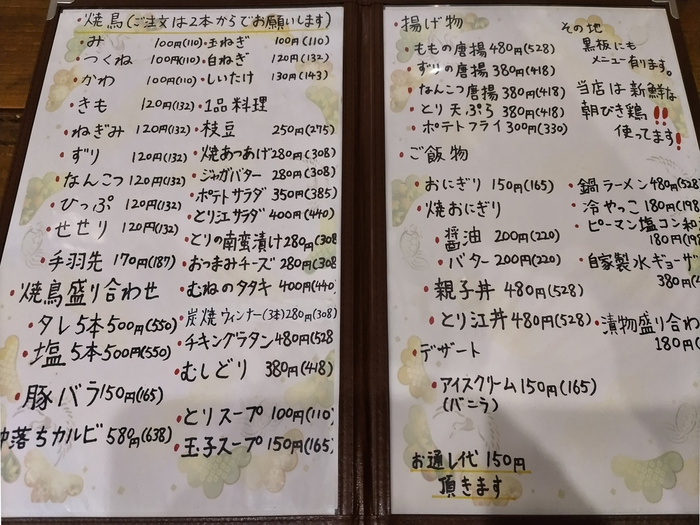 ・焼鳥(ご注文は2本からでお願いします)
・み 100円(110)
・つくね 100円(110)
・かわ 100円(110)
・きも 120円(132)
・ねぎみ 120円(132)
・ずり 120円(132)
・なんこつ 120円(132)
・ひっぷ 120円(132)
・せせり 120円(132)
・手羽先 170円(187)
・焼鳥盛り合わせ
・タレ5本500円(550)
・塩5本500円(550)
・豚バラ150円(165)
中落ちカルビ 580円(638)
・玉ねぎ 100円(110)
・白ねぎ 120円(132)
・しいたけ 130円(143)
・1品料理
・枝豆 250円(275)
・焼あつあげ280円(308)
・ジャガバター 280円(308)
・ポテトサラダ 350円(385)
・とり江サラダ 400円(440)
・とりの南蛮漬け280円(308
・おつまみチーズ 280円(308
・むねのタタキ 400円(440
・炭焼ウィンナー(3本)280円(308)
・チキングラタン480円(528
・むしどり 380円(418)
・とりスープ 100円(110
・玉子スープ 150円(165
・揚げ物
・ももの唐揚480円(528)
・ずりの唐揚 380円(418)
・なんこつ唐揚 380円(418)
・とり天ぷら 380円(418)
・ポテトフライ 300円(330)
その他
黒板にも
メニュー有ります。
当店は新鮮な
朝びき鶏!!
使ってます!
・ご飯物
・おにぎり 150円(165)
・焼おにぎり
・醤油 200円(220)
・バター 200円(220)
・親子丼 480円(528)
・とり江丼 480円(528)
・デザート
・アイスクリーム150円(165)
(バニラ)
・鍋ラーメン480円(528
・冷やっこ 180円(198
・ピーマン塩コン和
180円(19
・自家製水ギョーザ
380円(4
・漬物盛り合わ
180円(
お通し代 150円
頂きます